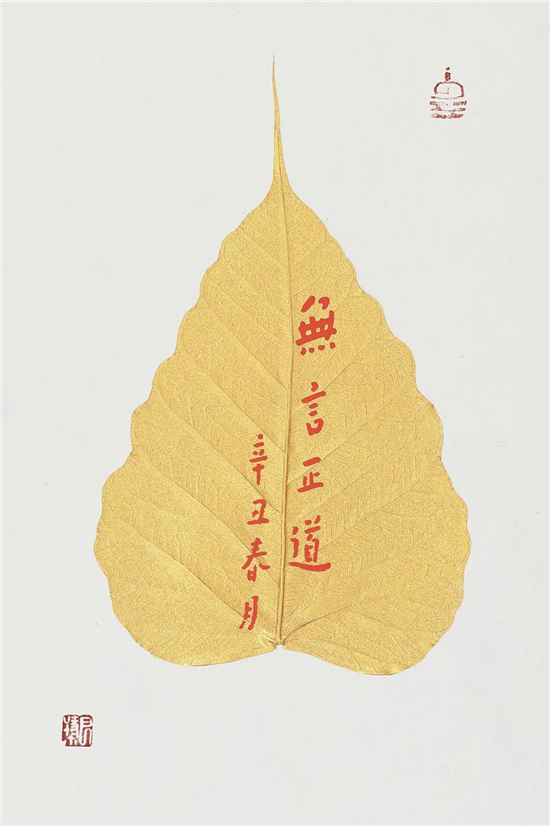 無言正道
辛丑春月